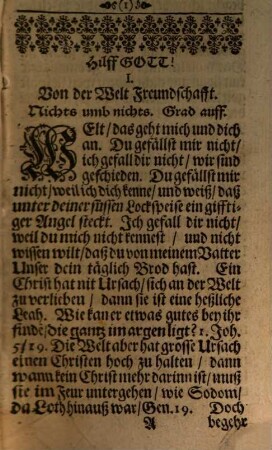 (1)
Hilff GOTT!
I.
Von der Welt Freundschafft.
Nichts umb nichts. Grad auff.
WElt/das geht mich und dich
an. Du gefällst mir nicht/
ich gefall dir nicht/wir sind
geschieden. Du gefällst mir
nicht/weil ich dich kenne/und weiß/daß
unter deiner süssen Lockspeise ein giffti-
ger Angel steckt. Ich gefall dir nicht/
weil du mich nicht kennest / und nicht
wissen wilt/daß du von meinem Vatter
Unser dein täglich Brod hast. Ein
Christ hat nit Ursach/sich an der Welt
zu verlieben / dann sie ist eine heßliche
Leah. Wie kan er etwas gutes bey ihr
finde/die gantz im argen ligt? 1. Joh.
5/19. Die Welt aber hat grosse Ursach
einen Christen hoch zu halten / dann
wann kein Christ mehr darinn ist/muß
sie im Feur untergehen/ wie Sodom/
da Loth hinauß war/Gen. 19. Doch
A begehr